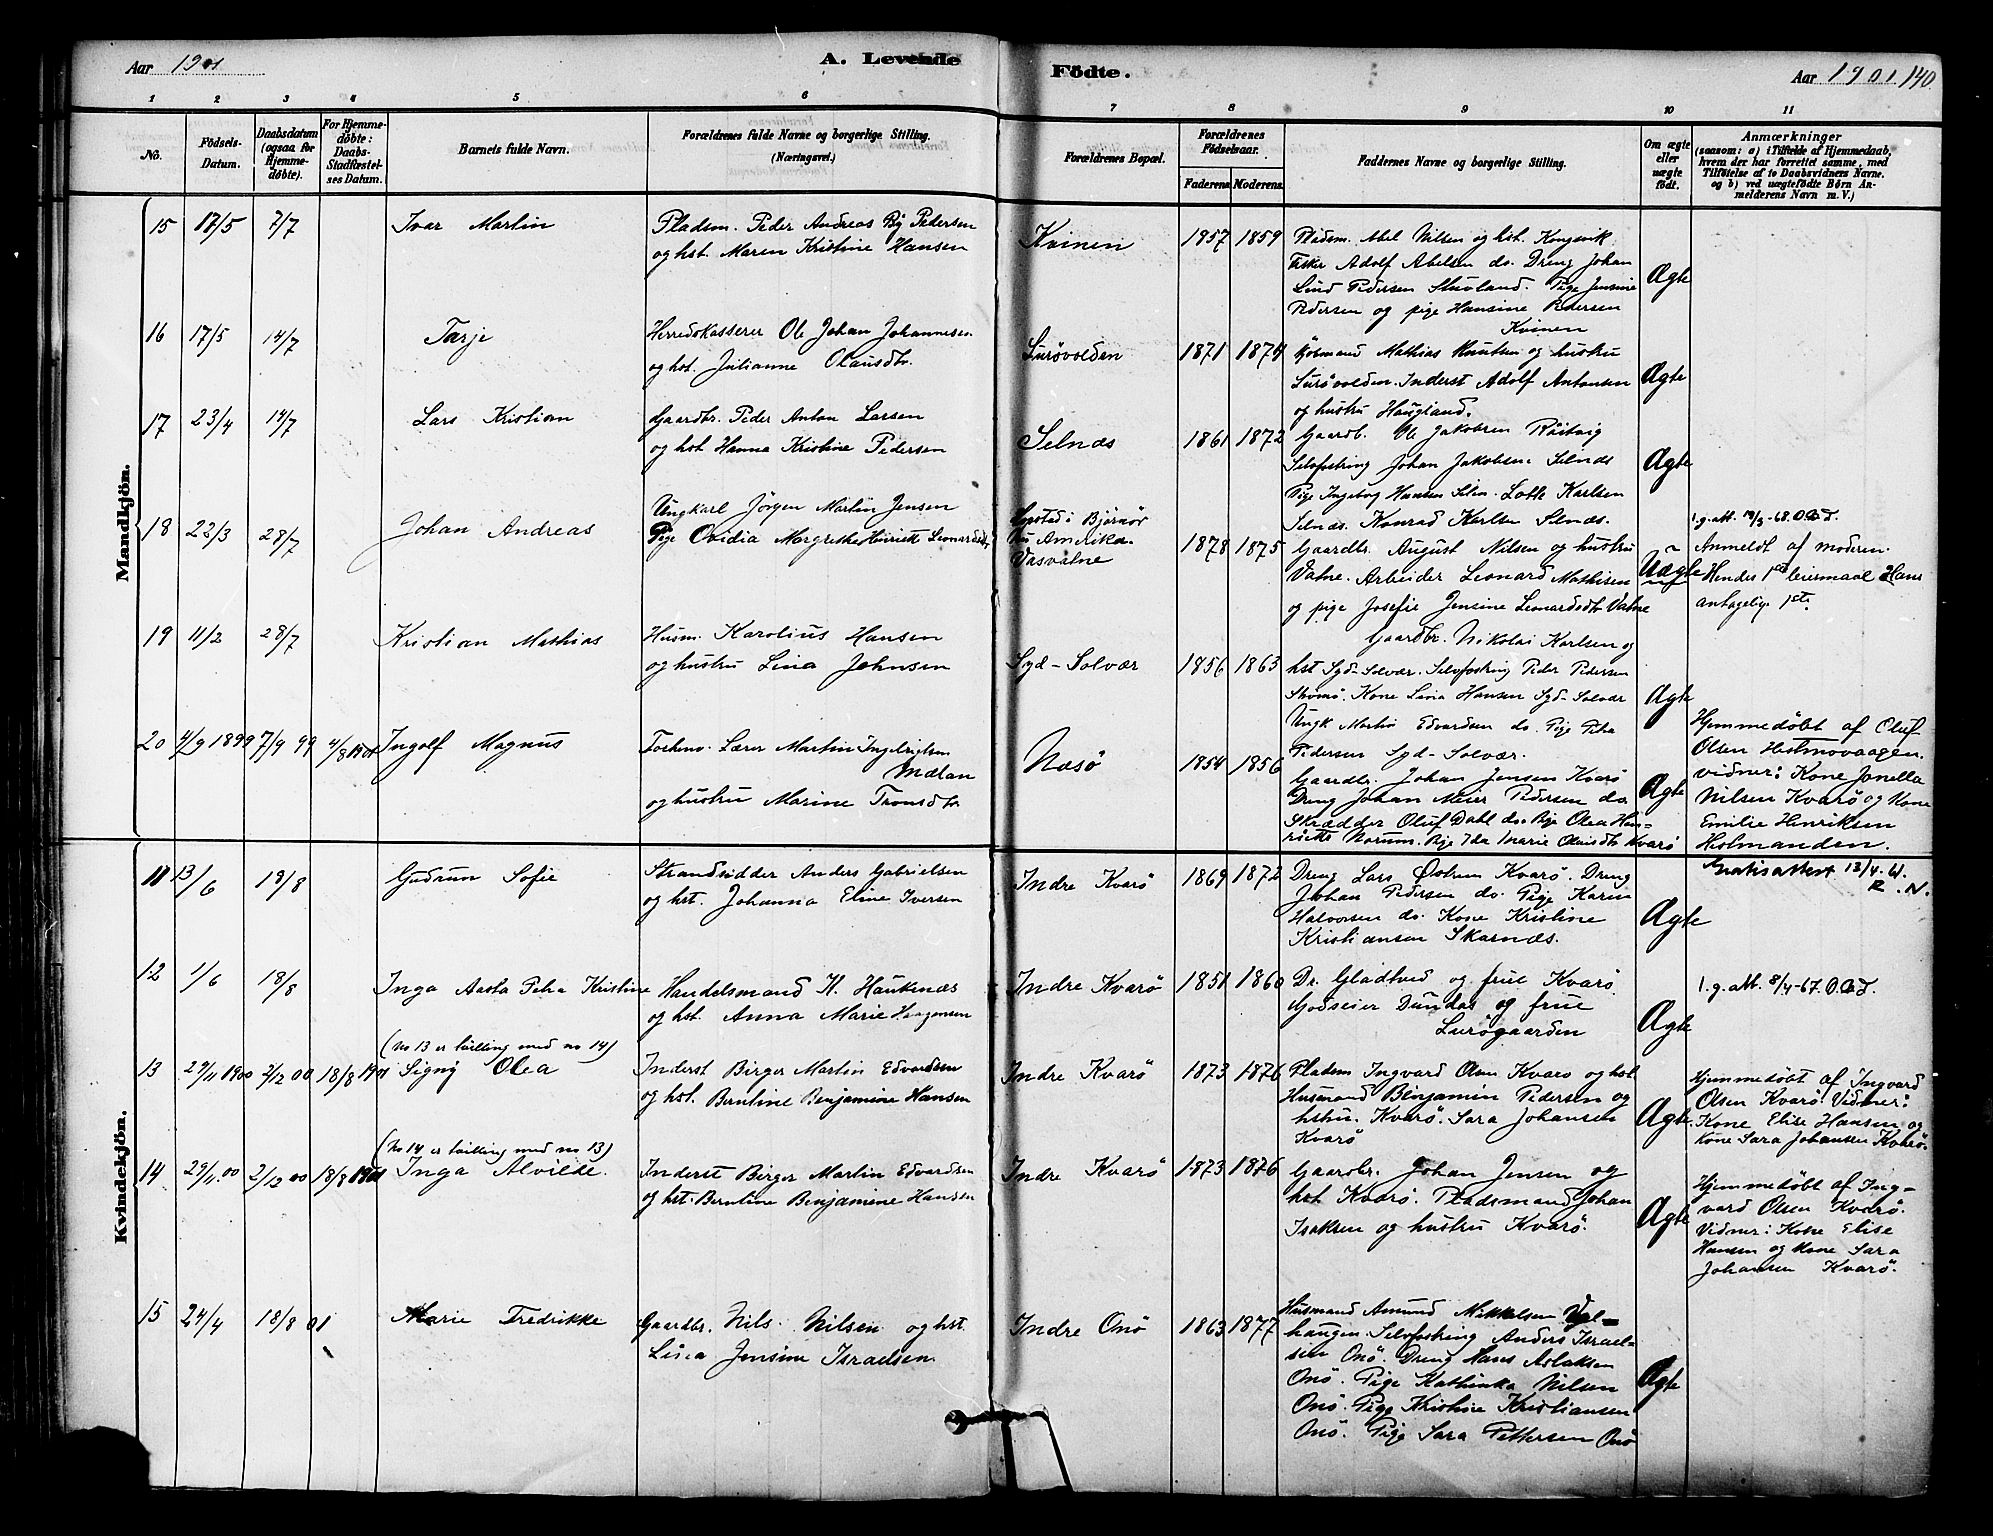 Aar 1901
A. Levende
Födte.
Aar 1901
140
1 2 3 4 5 6 7 8 9 10 11
No.
Födsels-
Datum.
Daabsdatum
(ogsaa for
Hjemme-
døbte).
For Hjemme-
døbte:
Daabs-
Stadfæstel-
ses Datum.
Barnets fulde Navn.
Forældrenes fulde Navne og borgerlige Stilling.
(Næringsvei.)
Forældrenes Bopæl.
Forældrenes
Födselsaar.
Faderens Moderens
Faddernes Navne og borgerlige Stilling.
Om ægte
eller
uægte
födt.
Anmærkninger
(saasom: a) i Tilfælde af Hjemmedaab,
hvem der har forrettet samme, med
Tilföielse af to Daabsvidners Navne.
og b) ved uægtefödte Börn An-
melderens Navn m. V.)
Mandkjön.
15 17/5 7/7 Ivar Martin
Pladsm. Peder Andreas Pedersen
og hst. Maren Kristine Hansen
Kvinen 1857 1859
Pladsm. Abel Nilsen og hst. Kongsvik
Fisker Adolf Abelsen do. Dreng Johan
Lind Pedersen Stuvland. Pige Jensine
Pedersen og pige Hansine Pedersen
Kvinen
Ægte
16 17/5 14/7 Tarje
Herredskasserer Ole Johan Johannesen
og hst. Julianne Olausdtr.
Lurövolden 1871 1874
Kjöbmand Mathias Knutsen og hustru
Lurövolden. Inderst Adolf Antonsen
og hustru Haugland.
Ægte
17 23/4 14/7 Lars Kristian
Gaardbr. Peder Anton Larsen
og hst Hanna Kristine Pedersen
Selnæs 1861 1872
Gaardb. Ole Jakobsen
Selvfostring Johan Jakobsen Selnæs
Pige Ingeborg Hansen Lotte Karlsen
Selnæs. Konrad Karlsen Selnæs.
Ægte
18 22/3 28/7 Johan Andreas
Ungkarl Jörgen Martin Jensen
Pige Ovidia Margrethe Henriette Leonardsd.
Opstad i Bjørnör
nu Amerika
Vasvatne
1878 1875
Gaardbr. August Nilsen og hustru
Vatne. Arbeider Leonard Mathisen
og pige Josefie Jensine Leonardsdtr Vatne
Uægte
Anmeldt af moderen.
Hendes 1ste leiermaal Hans
antagelig 1ste
19 11/2 28/7 Kristian Mathias
Husm. Karolius Hansen
og hustru Lina Johnsen
Syd-Solvær 1856 1863
Gaardbr. Nikolai Karlsen og
hst Syd-Solvær. Selvfostring Peder Pedersen
Kone Lina Hansen Syd-Solvær
Ungk Martin Edvardsen do. Pige Petra
Pedersen Syd-Solvær.
Ægte
20 4/9 1899 7/9 99 4/8 1901 Ingolf Magnus
Forhenv. Lærer Martin Ingebrigtsen
Mælan
og hustru Marine Tronsdtr
Næsö 1854 1856
Gaardbr. Johan Jensen Kvarö
Dreng Johan Meier Pedersen do
Skrædder Oluf Dahl do. Pige Olea Hen-
riette Norum. Pige Ida Marie Olausdtr Kvarö
Ægte
Hjemmedöbt af Oluf
Olsen Holmovaagen.
vidner: Kone Jonella
Nilsen Kvarö og Kone
Emilie Henriksen
Holmanden.
Kvindekjön.
11 13/6 18/8 Gudrun Sofie
Strandsidder Anders Gabrielsen
og hst. Johanna Eline Iversen
Indre Kvarö 1869 1872
Dreng Lars Olsen Kvarö. Dreng
Johan Pedersen do. Pige Karin
Halvorsen do. Kone Kristine
Kristiansen Skarnæs.
Ægte
Gratisattest 13/4-61.
R. N.
12 1/6 18/8 Inga Aasta Petra Kristine
Handelsmand H. Hauknæs
og hst. Anna Marie Haagensen
Indre Kvarö 1851 1860
Dr. Gladtved og frue Kvarö.
Godseier Dundas og frue
Lurögaarden
Ægte
1. g. att. 8/4-67.
(No 13 er tvilling med no 14)
13 29/11 1900 2/12 00 18/8 1901 Signy Olea
Inderst Birger Martin Edvardsen
og hst. Berntine Benjamine Hansen
Indre Kvarö 1873 1876
Pladsm Ingvard Olsen Kvarö og hst.
Husmand Benjamin Pedersen og
hstru. Kvarö. Sara Johansen
Kvarö
Ægte
Hjemmedöbt af Ingvard
Olsen Kvarö. Vidner:
Kone Elise Hansen og
Kone Sara Johansen Kvarö.
(No 14 er tvilling med no 13)
14 29/11.00 2/12 00 18/8 1901 Inga Alvilde.
Inderst Birger Martin Edvardsen
og hst. Berntine Benjamine Hansen
Indre Kvarö 1873 1876
Gaardbr. Johan Jensen og
hst Kvarö. Pladsmand Johan
Isaksen og hustru Kvarö.
Ægte
Hjemmedöbt af Ing-
vard Olsen Kvarö.
Vidner: Kone Elise
Hansen og Kone Sara
Johansen Kvarö.
15 24/4 18/8 01 Marie Fredrikke
Gaardbr. Nils Nilsen og hst.
Lina Jensine Israelsen
Indre Onö 1863 1877
Husmand Amund Mikkelsen
haugen. Selvfostring Anders Israel-
sen Onö. Dreng Hans Aslaksen
Onö. Pige Kathinka Nilsen
Onö. Pige Kristine Kristiansen
Onö. Pige Sara Pettersen Onö
Ægte